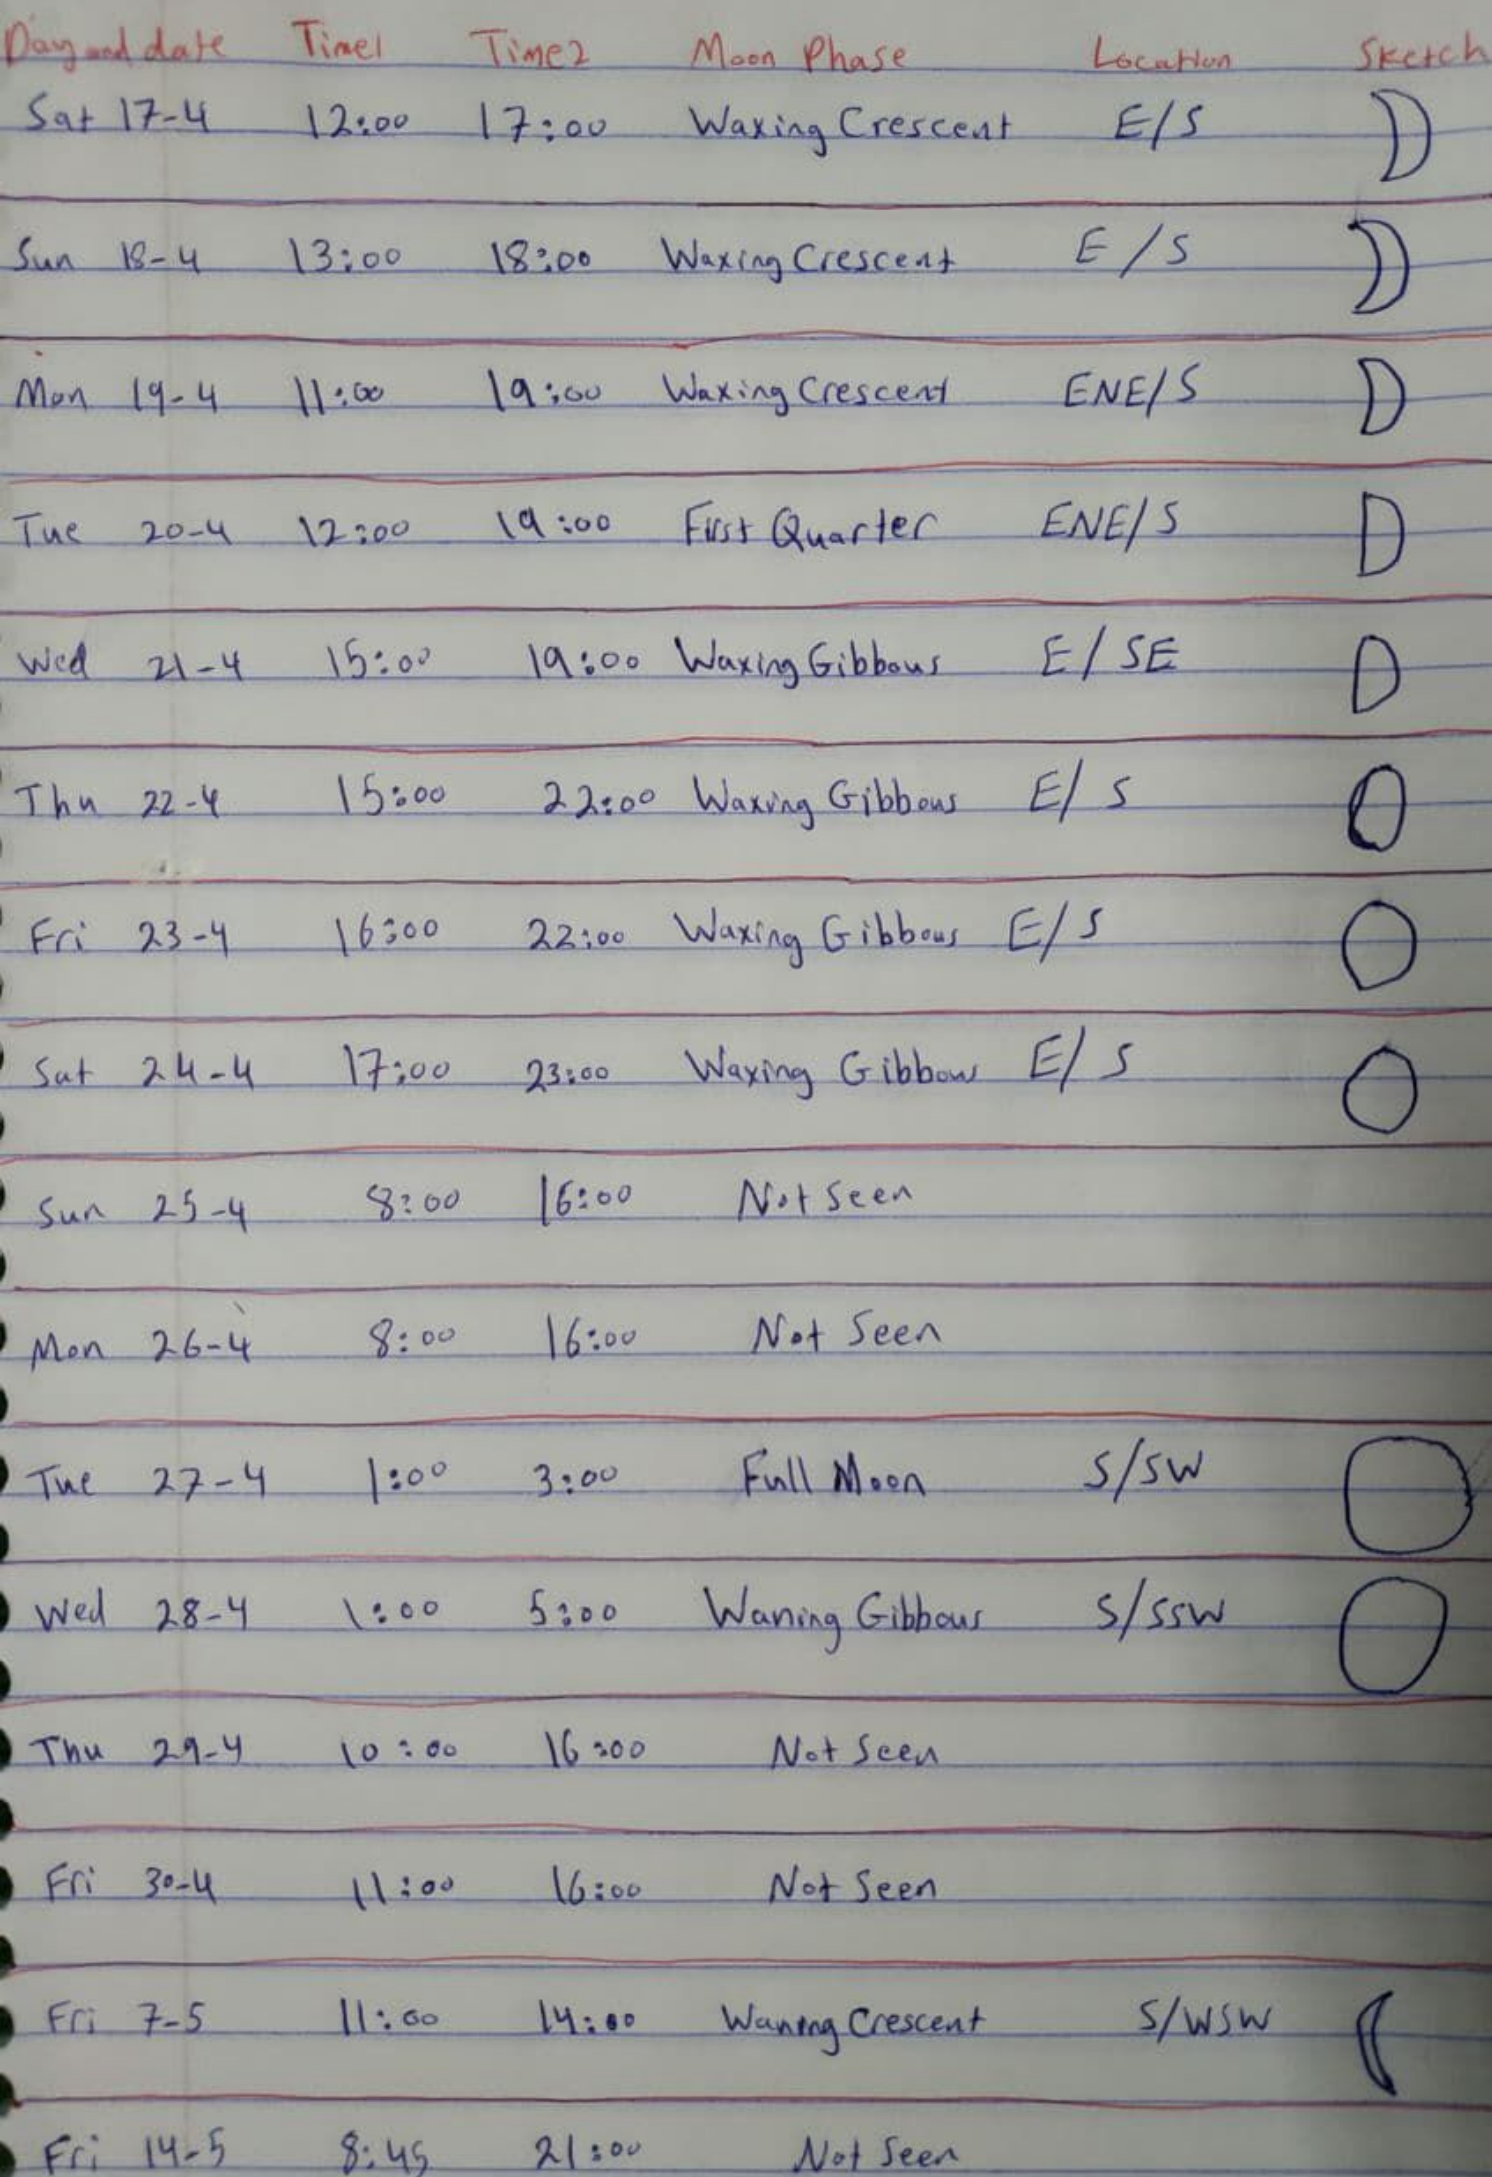 Day and date Time1 Time2 Moon Phase Location Sketch
Sat 17-4 12:00 17:00 Waxing Crescent E/S
Sun 18-4 13:00 18:00 Waxing Crescent E/S
Mon 19-4 11:00 19:00 Waxing Crescent ENE/S
Tue 20-4 12:00 19:00 First Quarter ENE/S
Wed 21-4 15:00 19:00 Waxing Gibbous E/SE
Thu 22-4 15:00 22:00 Waxing Gibbous E/S
Fri 23-4 16:00 22:00 Waxing Gibbous E/S
Sat 24-4 17:00 23:00 Waxing Gibbous E/S
Sun 25-4 8:00 16:00 Not Seen
Mon 26-4 8:00 16:00 Not Seen
Tue 27-4 1:00 3:00 Full Moon S/SW
Wed 28-4 1:00 5:00 Waning Gibbous S/SSW
Thu 29-4 10:00 16:00 Not Seen
Fri 30-4 11:00 16:00 Not Seen
Fri 7-5 11:00 14:00 Waning Crescent S/WSW
Fri 14-5 8:45 21:00 Not Seen